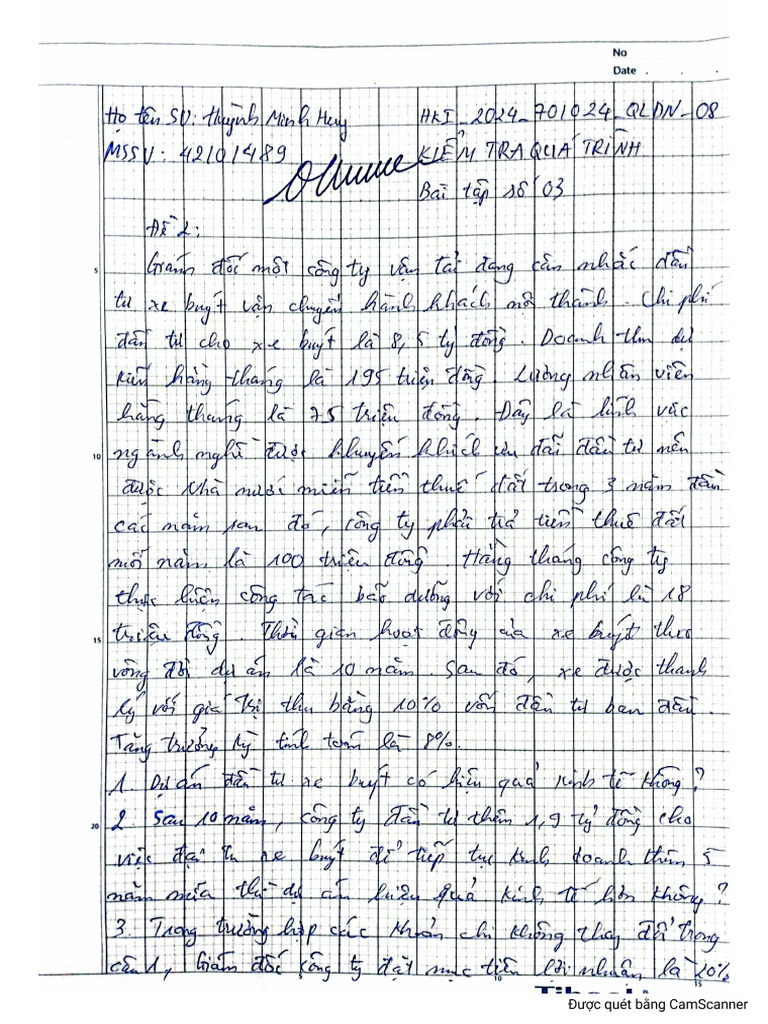 No
Date
Họ tên SV: Huỳnh Minh Huy HKI_2024_701024_QLDN_08
MSSV: 42101489 KIỂM TRA QUÁ TRÌNH
Bài tập số 03
Đề 2:
Giám đốc một công ty vận tải đang cân nhắc đầu
tư xe buýt vận chuyển hành khách nội thành. Chi phí
đầu tư cho xe buýt là 8,5 tỷ đồng. Doanh thu dự
kiến hằng tháng là 195 triệu đồng. Lương nhân viên
hằng tháng là 75 triệu đồng. Đây là lĩnh vực
ngành nghề được khuyến khích ưu đãi đầu tư nên
được Nhà nước miễn tiền thuê đất trong 3 năm đầu
các năm sau đó, công ty phải trả tiền thuê đất
mỗi năm là 100 triệu đồng. Hằng tháng công ty
thực hiện công tác bảo dưỡng với chi phí là 18
triệu đồng. Thời gian hoạt động của xe buýt theo
vòng đời dự án là 10 năm. Sau đó, xe được thanh
lý với giá trị thu bằng 10% vốn đầu tư ban đầu.
Tăng trưởng kỳ tính toán là 8%.
1. Dự án đầu tư xe buýt có hiệu quả kinh tế không?
2. Sau 10 năm, công ty đầu tư thêm 1,9 tỷ đồng cho
việc đại tu xe buýt để tiếp tục kinh doanh thêm 5
năm nữa thì dự án hiệu quả kinh tế hơn không?
3. Trong trường hợp các khoản chi không thay đổi trong
câu 1, Giám đốc công ty đặt mục tiêu lợi nhuận là 20%
5
10
15
20
5
10
15
Được quét bằng CamScanner